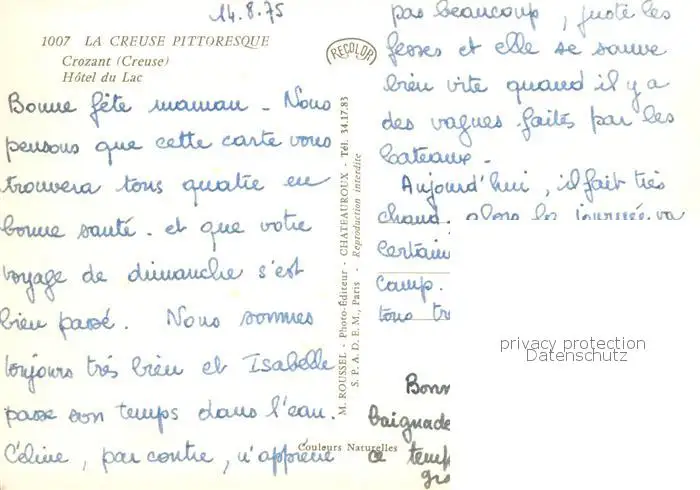 14.8.75
1007 LA CREUSE PITTORESQUE
Crozant (Creuse)
Hôtel du Lac
RECOLOR
Bonne fête maman - Nous
pensons que cette carte vous
trouvera tous quatre en
bonne santé. et que votre
voyage de dimanche s'est
bien passé. Nous sommes
toujours très bien et Isabelle
passe son temps dans l'eau.
Céline, par contre, n'apprécie
M. ROUSSEL - Photo-Éditeur - CHATEAUROUX - Tél. 34.17.83
S.P.A.D.E.M., Paris - Reproduction interdite
Couleurs Naturelles
pas beaucoup, juste les
fesses et elle se sauve
bien vite quand il y a
des vagues faites par les
bateaux.
Aujourd'hui, il fait très
chaud. alors la journée va
certain
camp.
tous
Bonn
baignade
ce temp
gro
privacy protection
Datenschutz